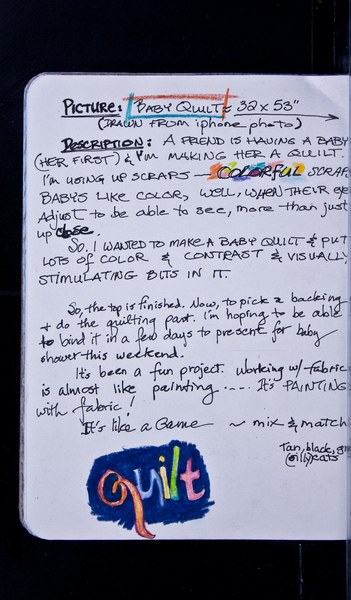 PICTURE: BABY QUILT ≈ 32 x 53"
(DRAWN FROM iphone photo)
DESCRIPTION: A FRIEND IS HAVING A BABY
(HER FIRST) & I'm MAKING HER A QUILT.
I'm USING UP SCRAPS — COLORFUL SCRAPS
BABY'S LIKE COLOR, WELL, WHEN THEIR EYE
Adjust to be able to see, more than just
up close.
So, I WANTED TO MAKE A BABY QUILT & PUT
LOTS OF COLOR & CONTRAST & VISUALLY
STIMULATING BITS IN IT.
So, the top is finished. Now, to pick a backing
+ do the quilting part. I'm hoping to be able
to bind it in a few days to present for baby
shower this weekend.
It's been a fun project. Working w/ fabric
is almost like painting .... It's PAINTING
with fabric!
It's like a Game ~ mix & match
Tan, black,
(silly) cats
Quilt